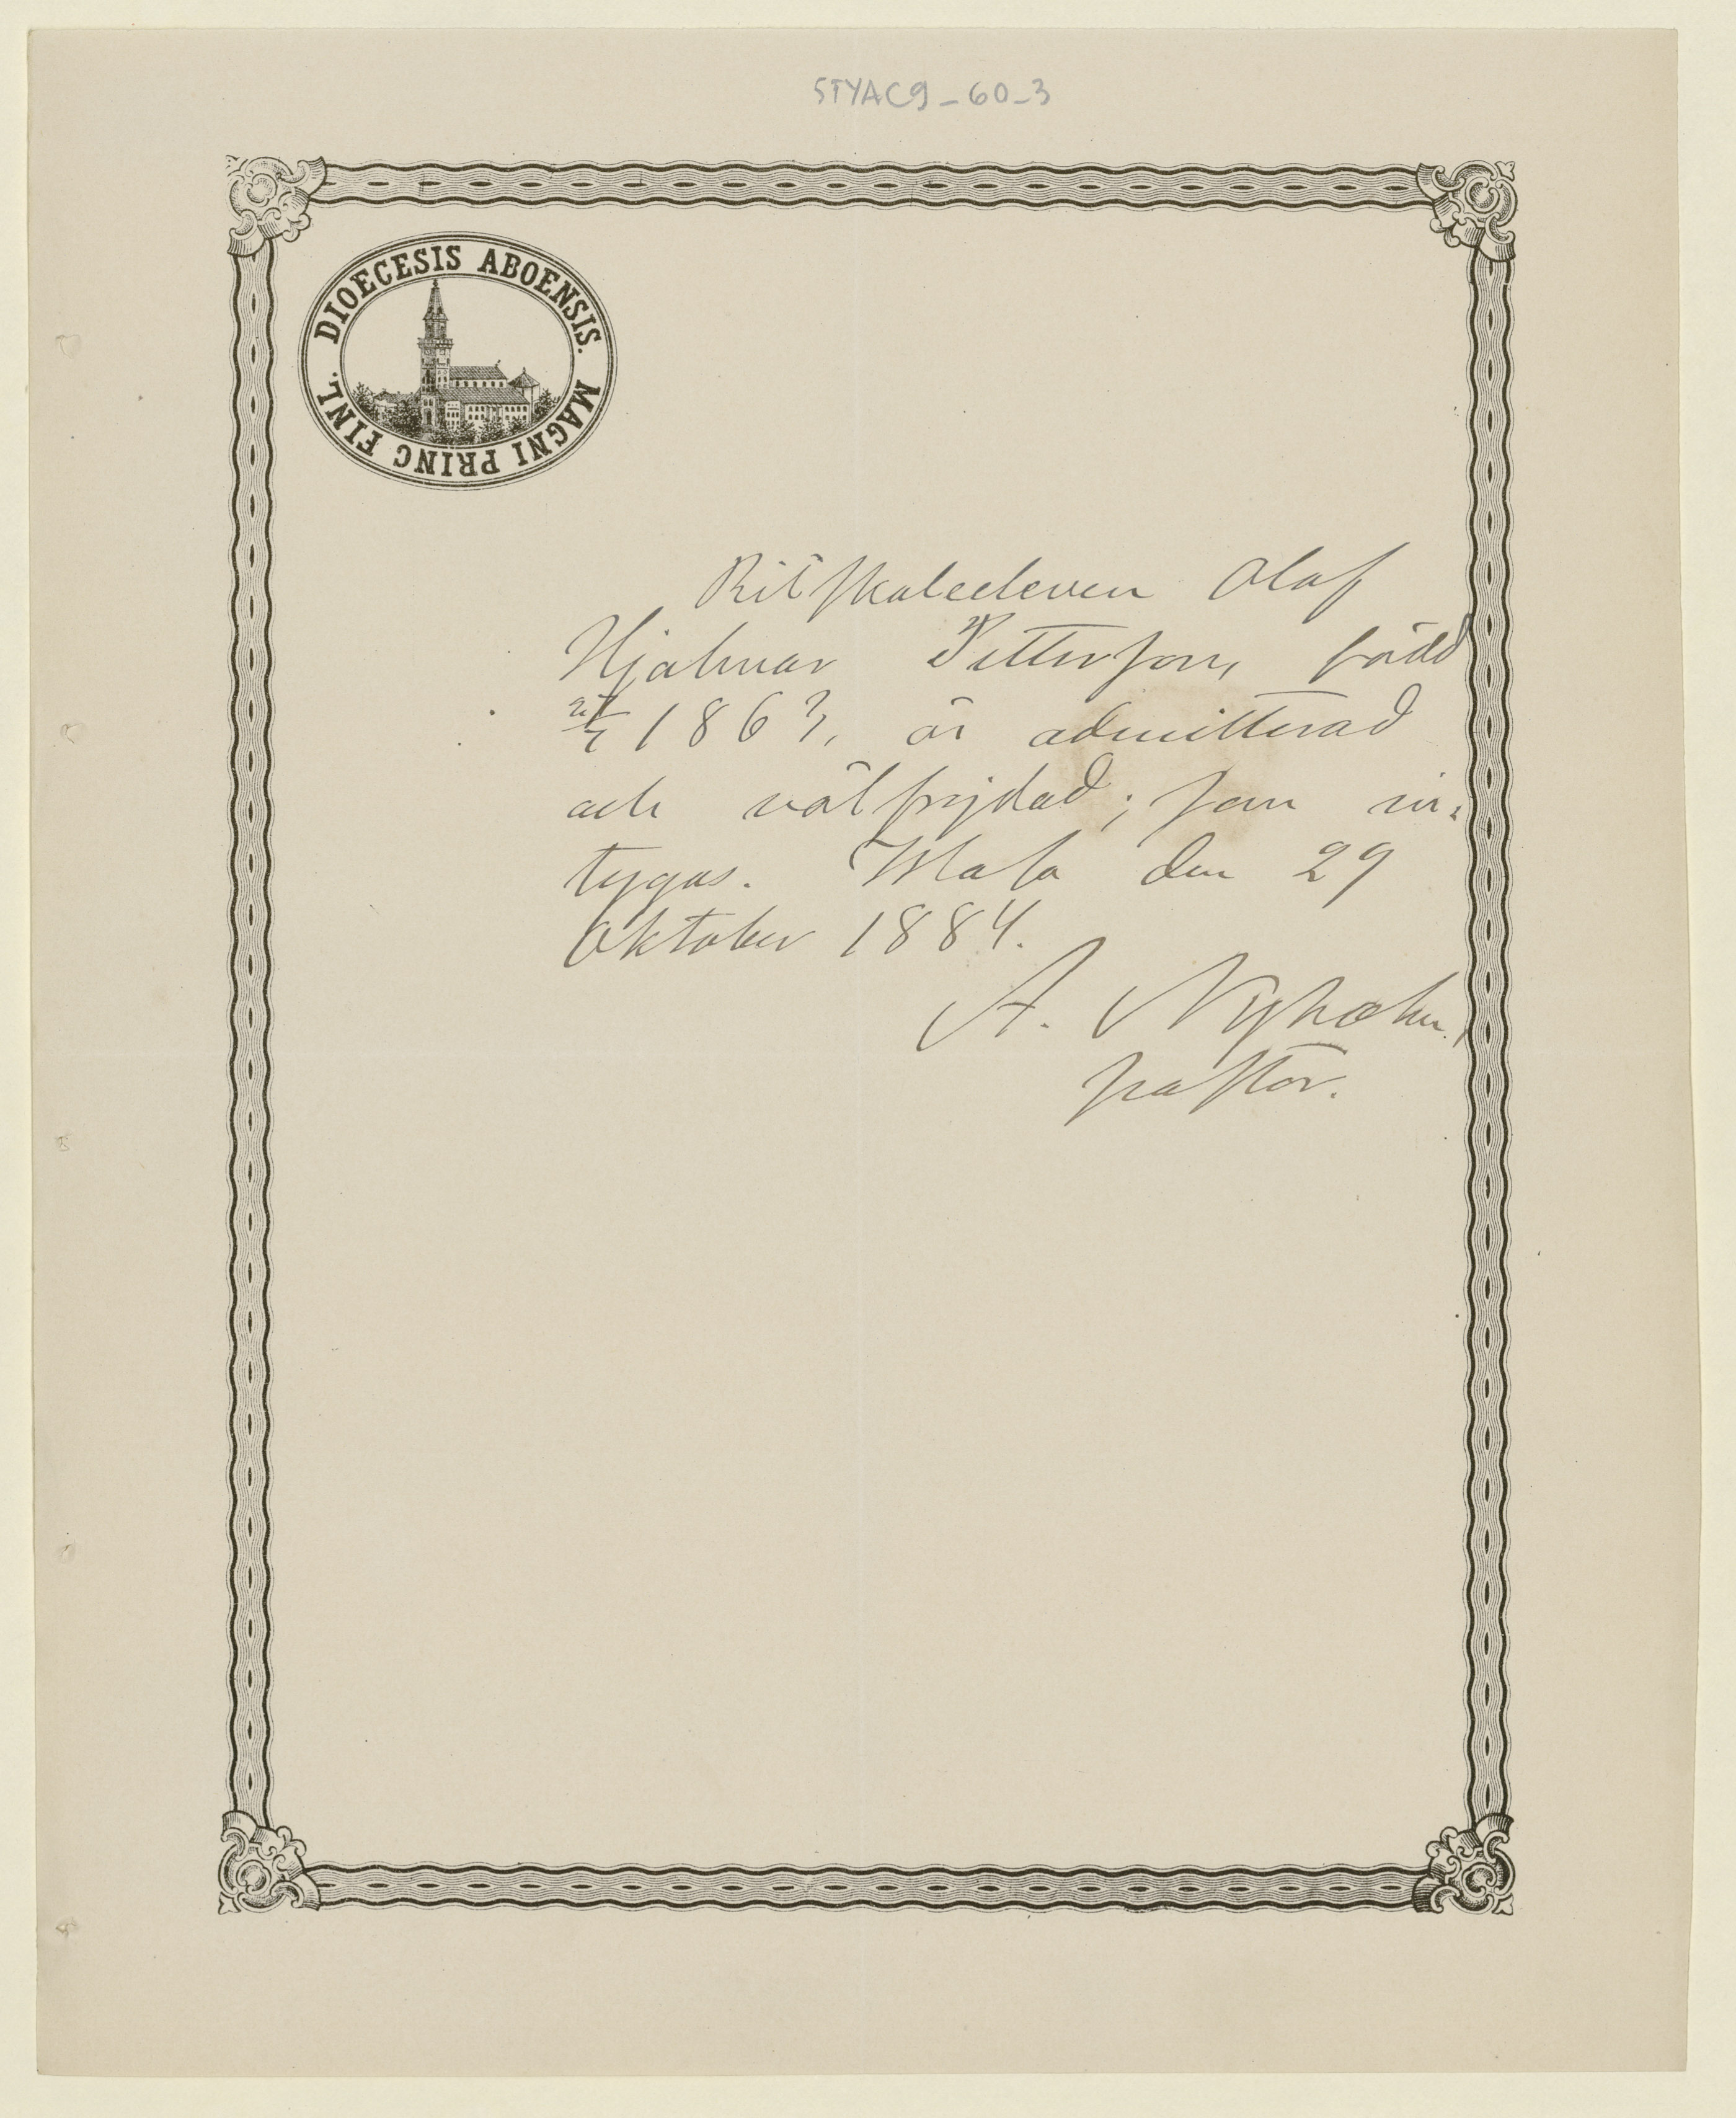 STYAC9_60_3
DIOECESIS ABOENSIS. MAGNI PRINC FINL.
Ritskoleeleven Olaf
Hjalmar Petterson, född
1863, är admitterad
och välfrejdad; som in-
tygas. Wasa den 29
Oktober 1884.
A. Nyholm,
pastor.